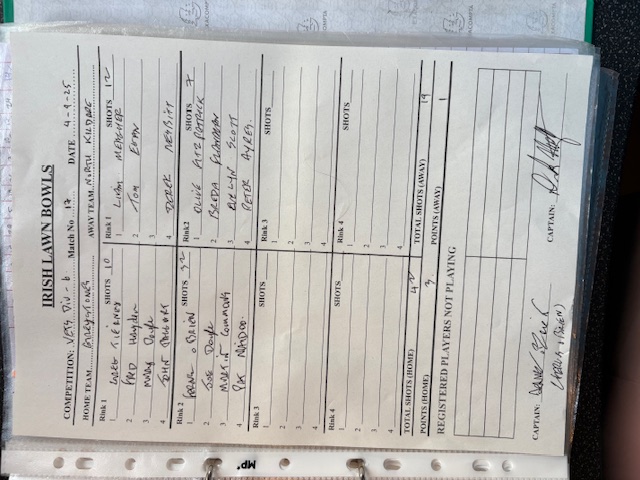 IRISH LAWN BOWLS
COMPETITION: VETS DIV - 6 Match No 17 DATE 4-9-25
HOME TEAM GREYSTONES AWAY TEAM NORTH KILDARE
Rink 1 SHOTS 10 Rink 1 SHOTS 12
1 TIERNEY 1 LIAM MEAGHER
2 FRED 2 TOM EGAN
3 MARY Doyle 3
4 JOHN 4 DEREK NESBITT
Rink 2 SHOTS 32 Rink 2 SHOTS 7
1 O BRIEN 1 OLIVE FITZPATRICK
2 JOE Doyle 2 BREDA FLANAGAN
3 MARTIN Cummins 3 EVELYN SCOTT
4 PAT NAIDOO 4 PETER AYRES
Rink 3 SHOTS Rink 3 SHOTS
1 1
2 2
3 3
4 4
Rink 4 SHOTS Rink 4 SHOTS
1 1
2 2
3 3
4 4
TOTAL SHOTS (HOME) 42 TOTAL SHOTS (AWAY) 19
POINTS (HOME) 3 POINTS (AWAY) 1
REGISTERED PLAYERS NOT PLAYING
CAPTAIN: CAPTAIN:
O'BRIEN)